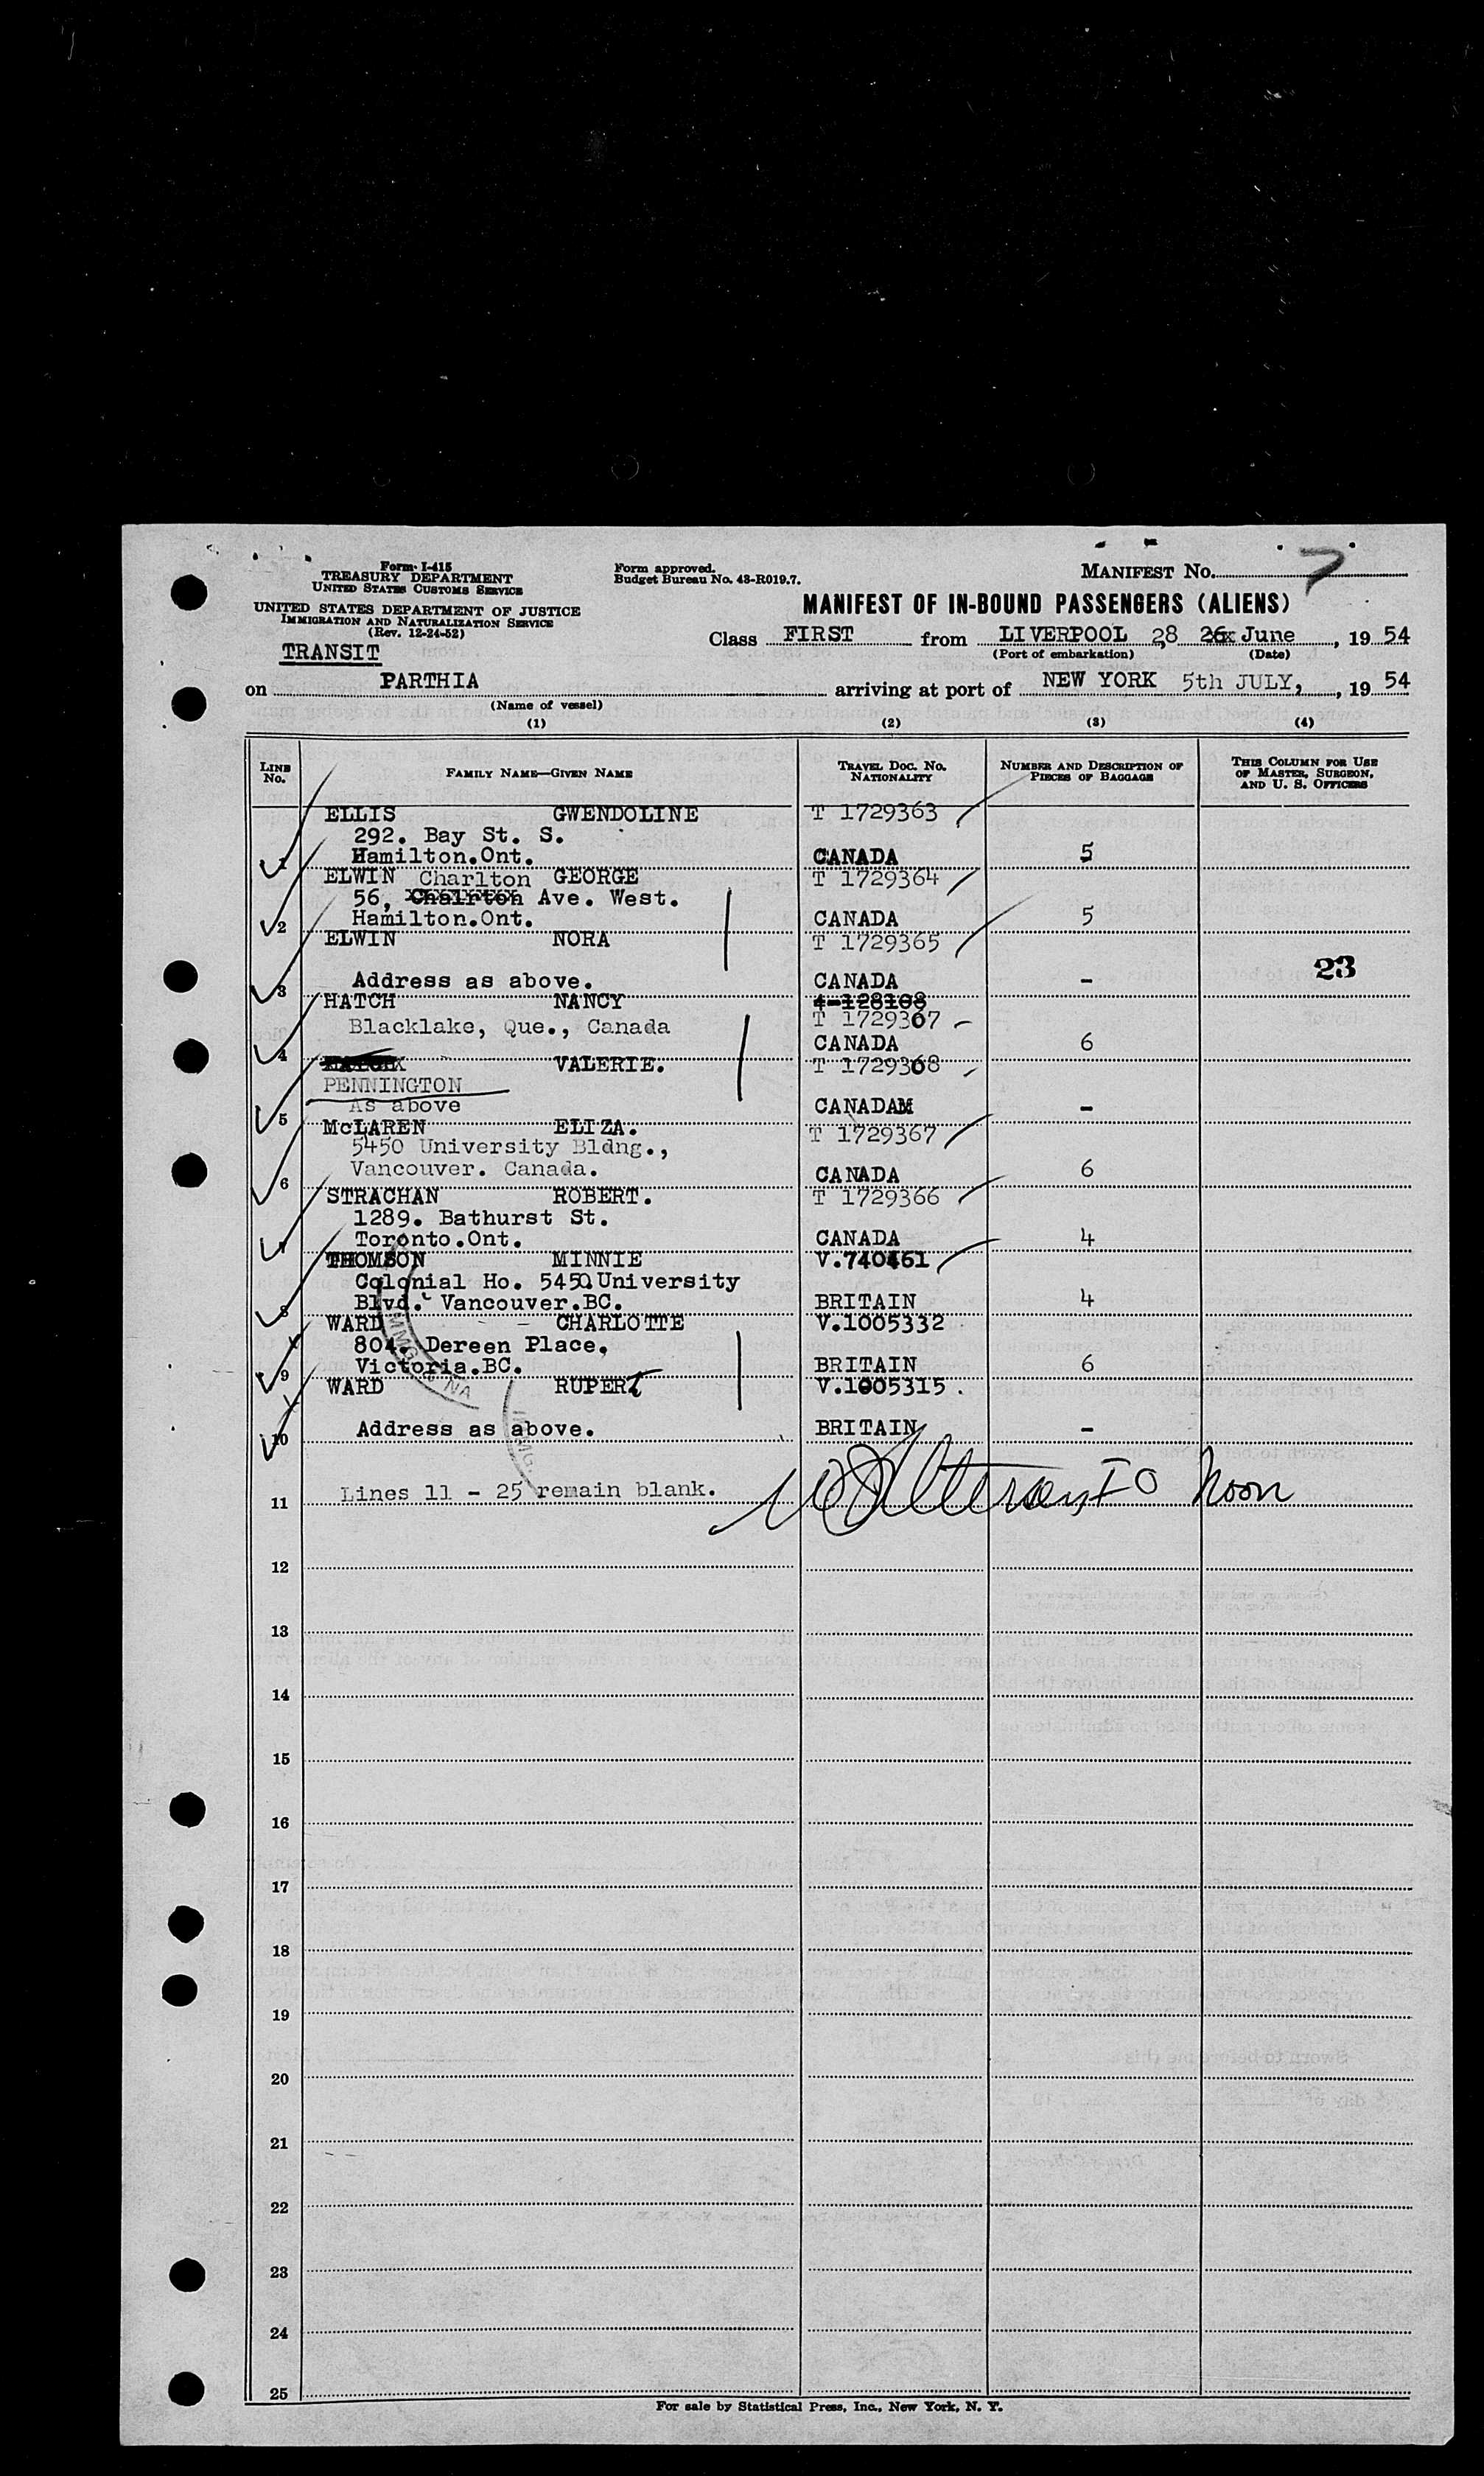 Form I-415
TREASURY DEPARTMENT
UNITED STATES CUSTOMS SERVICE
UNITED STATES DEPARTMENT OF JUSTICE
IMMIGRATION AND NATURALIZATION SERVICE
(Rev. 12-24-52)
TRANSIT
Form approved.
Budget Bureau No. 43-R019.7.
MANIFEST No. 7
MANIFEST OF IN-BOUND PASSENGERS (ALIENS)
Class FIRST from LIVERPOOL, 28 26x June, 19 54
(Port of embarkation) (Date)
on PARTHIA arriving at port of NEW YORK 5th JULY, 19 54
(Name of vessel)
(1) (2) (3) (4)
LINE No. FAMILY NAME—GIVEN NAME TRAVEL DOC. NO. NATIONALITY NUMBER AND DESCRIPTION OF PIECES OF BAGGAGE THIS COLUMN FOR USE OF MASTER, SURGEON, AND U. S. OFFICERS
ELLIS GWENDOLINE T 1729363
292. Bay St. S.
1 Hamilton.Ont. CANADA 5
ELWIN Charlton GEORGE T 1729364
56, Chalrton Ave. West.
2 Hamilton.Ont. CANADA 5
ELWIN NORA T 1729365
23
3 Address as above. CANADA -
HATCH NANCY 4-128108
T 1729367
Blacklake, Que., Canada
4 CANADA 6
VALERIE. T 1729368
PENNINGTON
5 As above CANADAM -
McLAREN ELIZA. T 1729367
5450 University Bldng.,
6 Vancouver. Canada. CANADA 6
STRACHAN ROBERT. T 1729366
1289. Bathurst St.
7 Toronto.Ont. CANADA 4
THOMSON MINNIE V.740461
Colonial Ho. 5450 University
8 Blvd. Vancouver.BC. BRITAIN 4
WARD - CHARLOTTE V.1005332
804. Dereen Place,
9 Victoria.BC. BRITAIN 6
WARD RUPERT V.1005315.
10 Address as above. BRITAIN -
11 Lines 11 - 25 remain blank. IO Noon
12
13
14
15
16
17
18
19
20
21
22
23
24
25
For sale by Statistical Press, Inc., New York, N. Y.